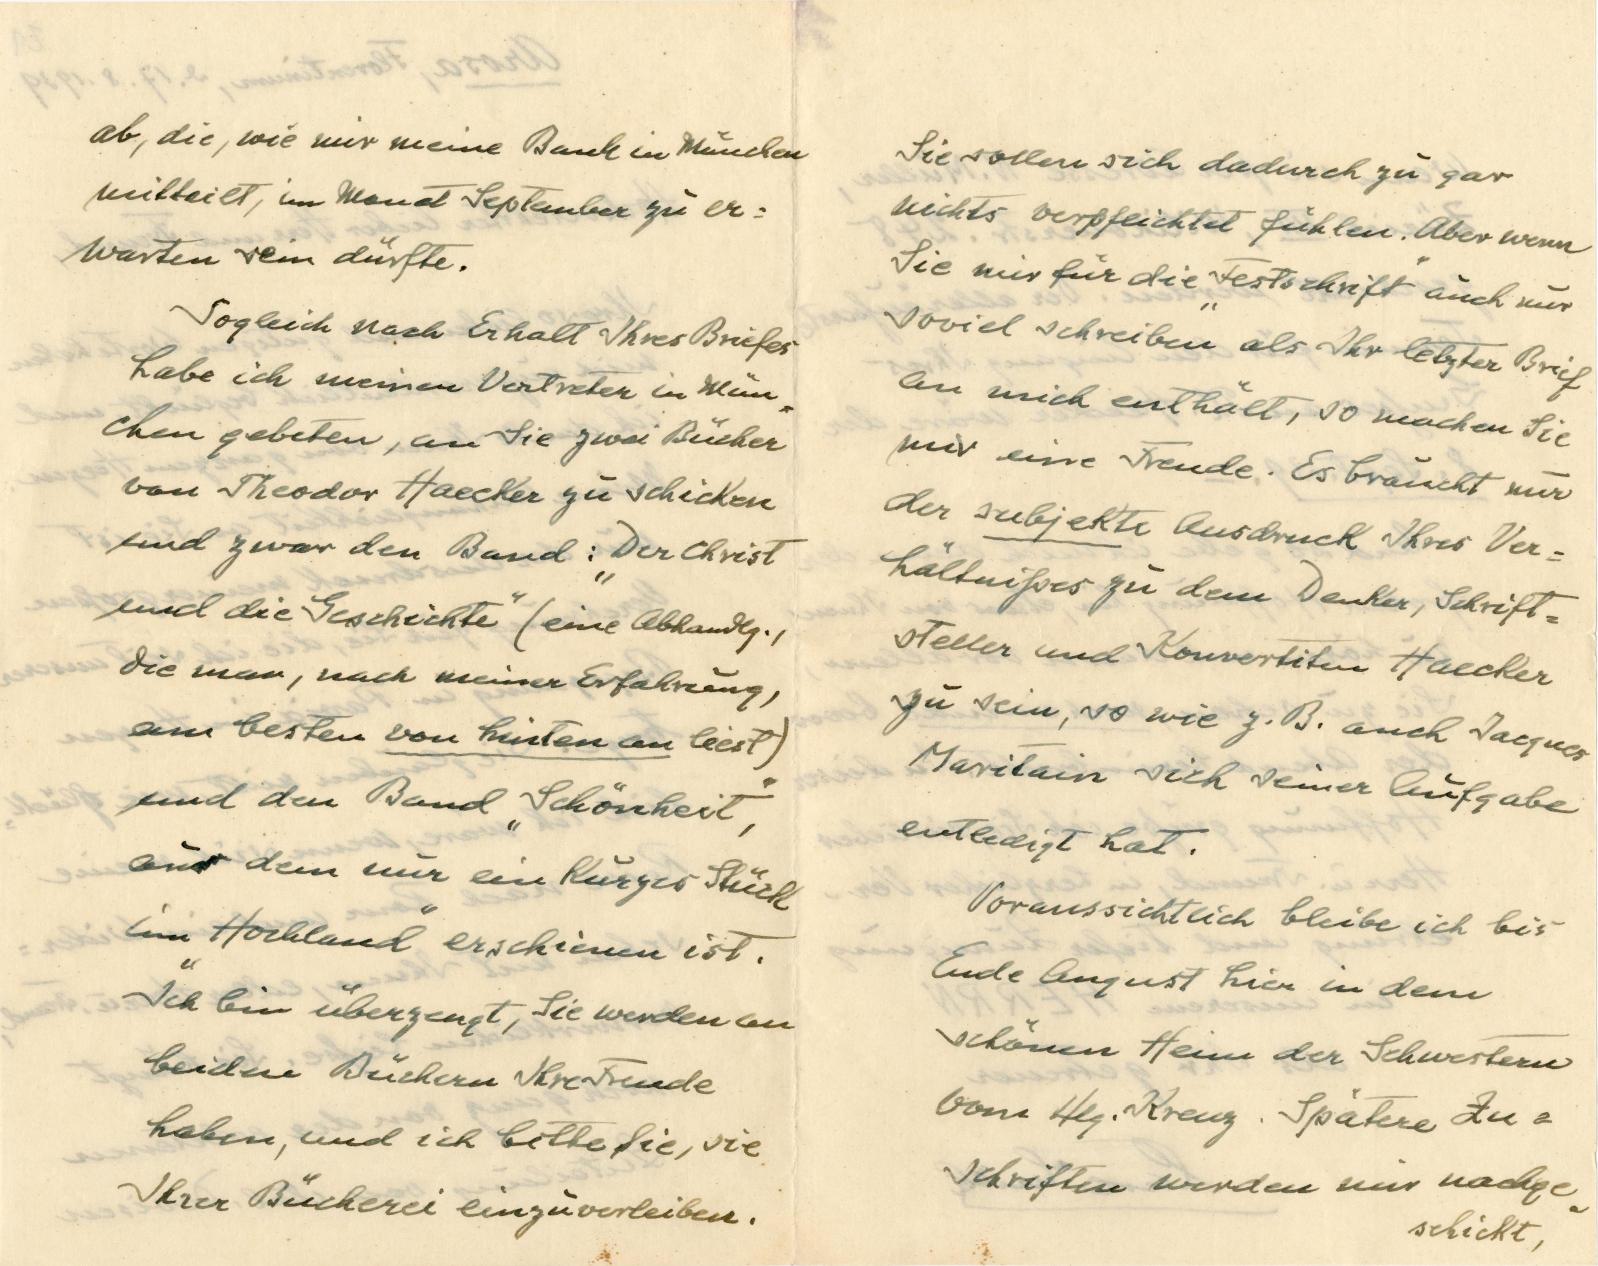 ab, die, wie mir meine Bank in München
mitteilt, im Monat September zu er=
warten sein dürfte.
Sogleich nach Erhalt Ihres Briefes
habe ich meinen Vertreter in Mün=
chen gebeten, an Sie zwei Bücher
von Theodor Haecker zu schicken
und zwar den Band: „Der Christ
und die Geschichte" (eine Abhandlg.,
die man, nach meiner Erfahrung,
am besten von hinten an liest)
und den Band „Schönheit",
aus dem nur ein kurzes Stück
im „Hochland" erschienen ist.
Ich bin überzeugt, Sie werden an
beiden Büchern Ihre Freude
haben, und ich bitte Sie, sie
Ihrer Bücherei einzuverleiben.
Sie sollen sich dadurch zu gar
nichts verpflichtet fühlen. Aber wenn
Sie mir für die „Festschrift" auch nur
soviel „schreiben" als Ihr letzter Brief
an mich enthält, so machen Sie
mir eine Freude. Es braucht nur
der subjekte Ausdruck Ihres Ver=
hältnisses zu dem Denker, Schrift=
steller und Konvertiten Haecker
zu sein, so wie z. B. auch Jacques
Maritain sich seiner Aufgabe
entledigt hat.
Voraussichtlich bleibe ich bis
Ende August hier in dem
schönen Heim der Schwestern
vom Hlg. Kreuz. Spätere Zu=
schriften werden mir nachge=
schickt,